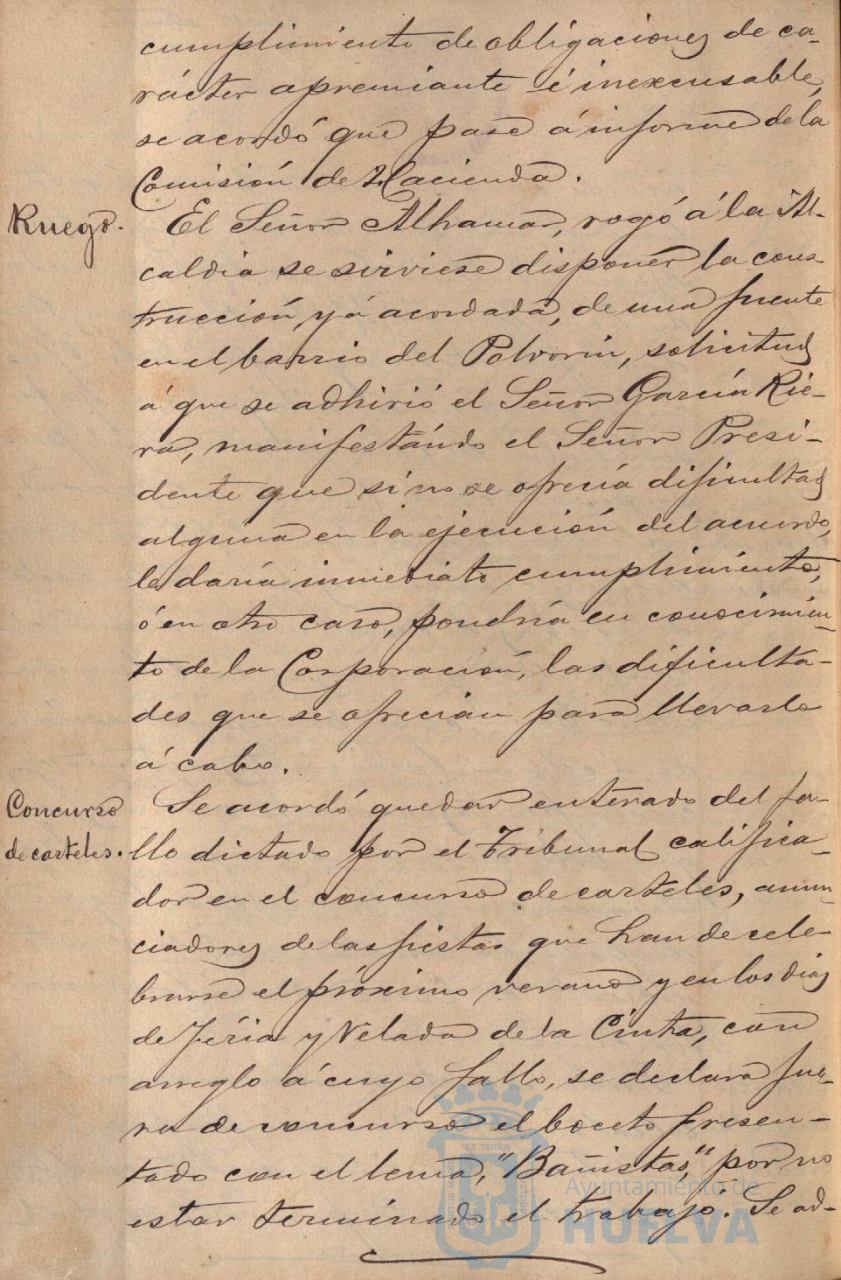 cumplimiento de obligaciones de ca-
rácter apremiante é inexcusable,
se acordó que pase á informe de la
Comisión de Hacienda.
Ruego.
El Señor Alhamar, rogó á la Al-
caldia se sirviese disponer la cons-
trucción yá acordada, de una fuente
en el barrio del Polvorin, solicitud
á que se adhirió el Señor García Rie-
ra, manifestándo el Señor Presi-
dente que si no se ofrecía dificultad
alguna en la ejecución del acuerdo,
le daría inmediato cumplimiento,
ó en otro caso, pondría en conocimien-
to de la Corporación, las dificulta-
des que se ofrecian para llevarlo
á cabo.
Concurso
de carteles.
Se acordó quedar enterado del fa-
llo dictado por el Tribunal califica-
dor en el concurso de carteles, anun-
ciadores de las fiestas que han de cele-
brarse el próximo verano y en los dias
de Féria y Velada de la Cinta, con
arreglo á cuyo fallo, se declara fue-
ra de concurso el boceto presen-
tado con el lema, "Bañistas", por no
estar terminado el trabajo. Se ad-
Ayuntamiento de
HUELVA